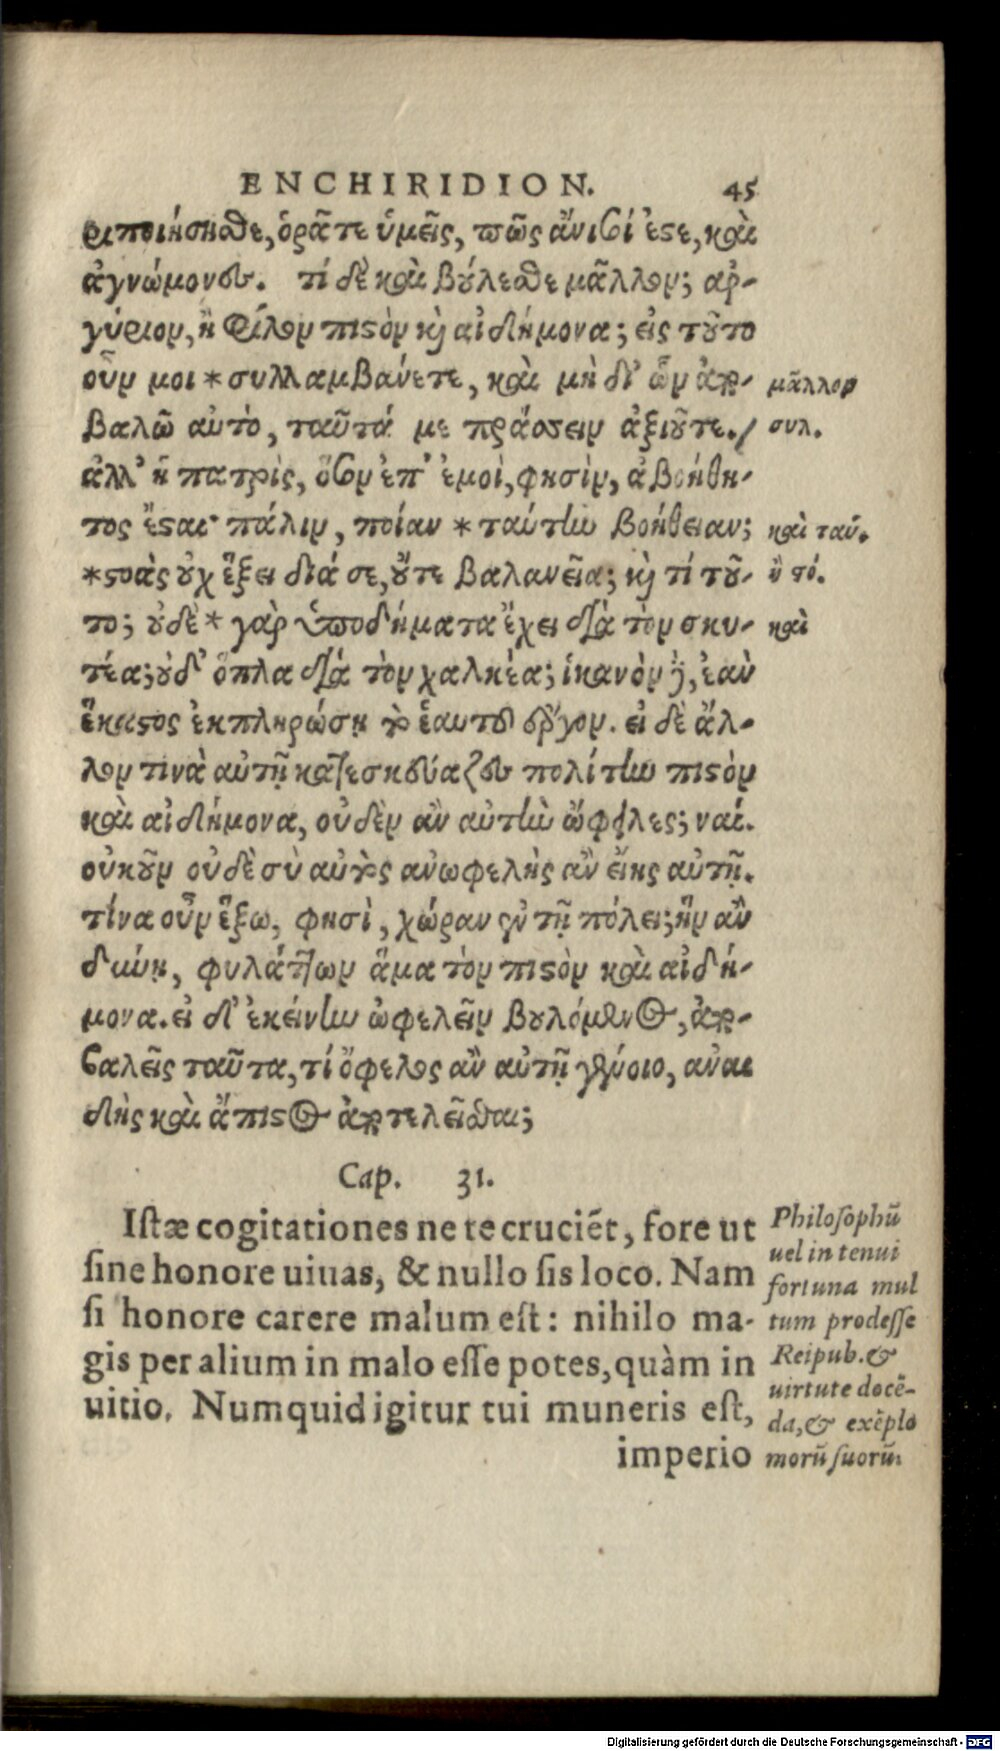 ENCHIRIDION. 45
ριποιήσησθε, ὁρᾶτε ὑμεῖς, πῶς ἄνισοί ἐστε, καὶ
ἀγνώμονες. τί δὲ καὶ βούλεσθε μᾶλλον; ἀρ-
γύριον, ἢ φίλον πιστὸν καὶ αἰδήμονα; εἰς τοῦτο
οὖν μοι * συλλαμβάνετε, καὶ μὴ δι' ὧν ἀπο- μᾶλλον
βαλῶ αὐτὸ, ταῦτά με πράσσειν ἀξιοῦτε. / συλ.
ἀλλ' ἡ πατρὶς, ὅσον ἐπ' ἐμοὶ, φησὶν, ἀβοήθη-
τος ἔσται· πάλιν, ποίαν * ταύτην βοήθειαν; καὶ ταύ.
* στοὰς οὐχ ἕξει διά σε, οὔτε βαλανεῖα; καὶ τί τοῦ- ὅτι.
το; οὐδὲ * γὰρ ὑποδήματα ἔχει διὰ τὸν σκυ- καὶ
τέα; οὐδ' ὅπλα διὰ τὸν χαλκέα; ἱκανὸν δὲ, ἐὰν
ἕκαστος ἐκπληρώσῃ τὸ ἑαυτοῦ ἔργον. εἰ δὲ ἄλ-
λον τινὰ αὐτῇ κατεσκεύαζες πολίτην πιστὸν
καὶ αἰδήμονα, οὐδὲν ἂν αὐτὴν ὠφέλεις; ναί.
οὐκοῦν οὐδὲ σὺ αὐτὸς ἀνωφελὴς ἂν εἴης αὐτῇ.
τίνα οὖν ἕξω, φησὶ, χώραν ἐν τῇ πόλει; ἣν ἂν
δύνῃ, φυλάττων ἅμα τὸν πιστὸν καὶ αἰδή-
μονα. εἰ δ' ἐκείνην ὠφελεῖν βουλόμενος, ἀπο-
βαλεῖς ταῦτα, τί ὄφελος ἂν αὐτῇ γένοιο, ἀναι
δὴς καὶ ἄπιστος ἀποτελεσθείς;
Cap. 31.
Istæ cogitationes ne te cruciēt, fore ut Philosophū
sine honore uiuas, & nullo sis loco. Nam uel in tenui
si honore carere malum est: nihilo ma- fortuna mul
gis per alium in malo esse potes, quàm in tum prodesse
uitio. Numquid igitur tui muneris est, Reipub. &
imperio
uirtute docē-
da, & exēplo
morū suorū.